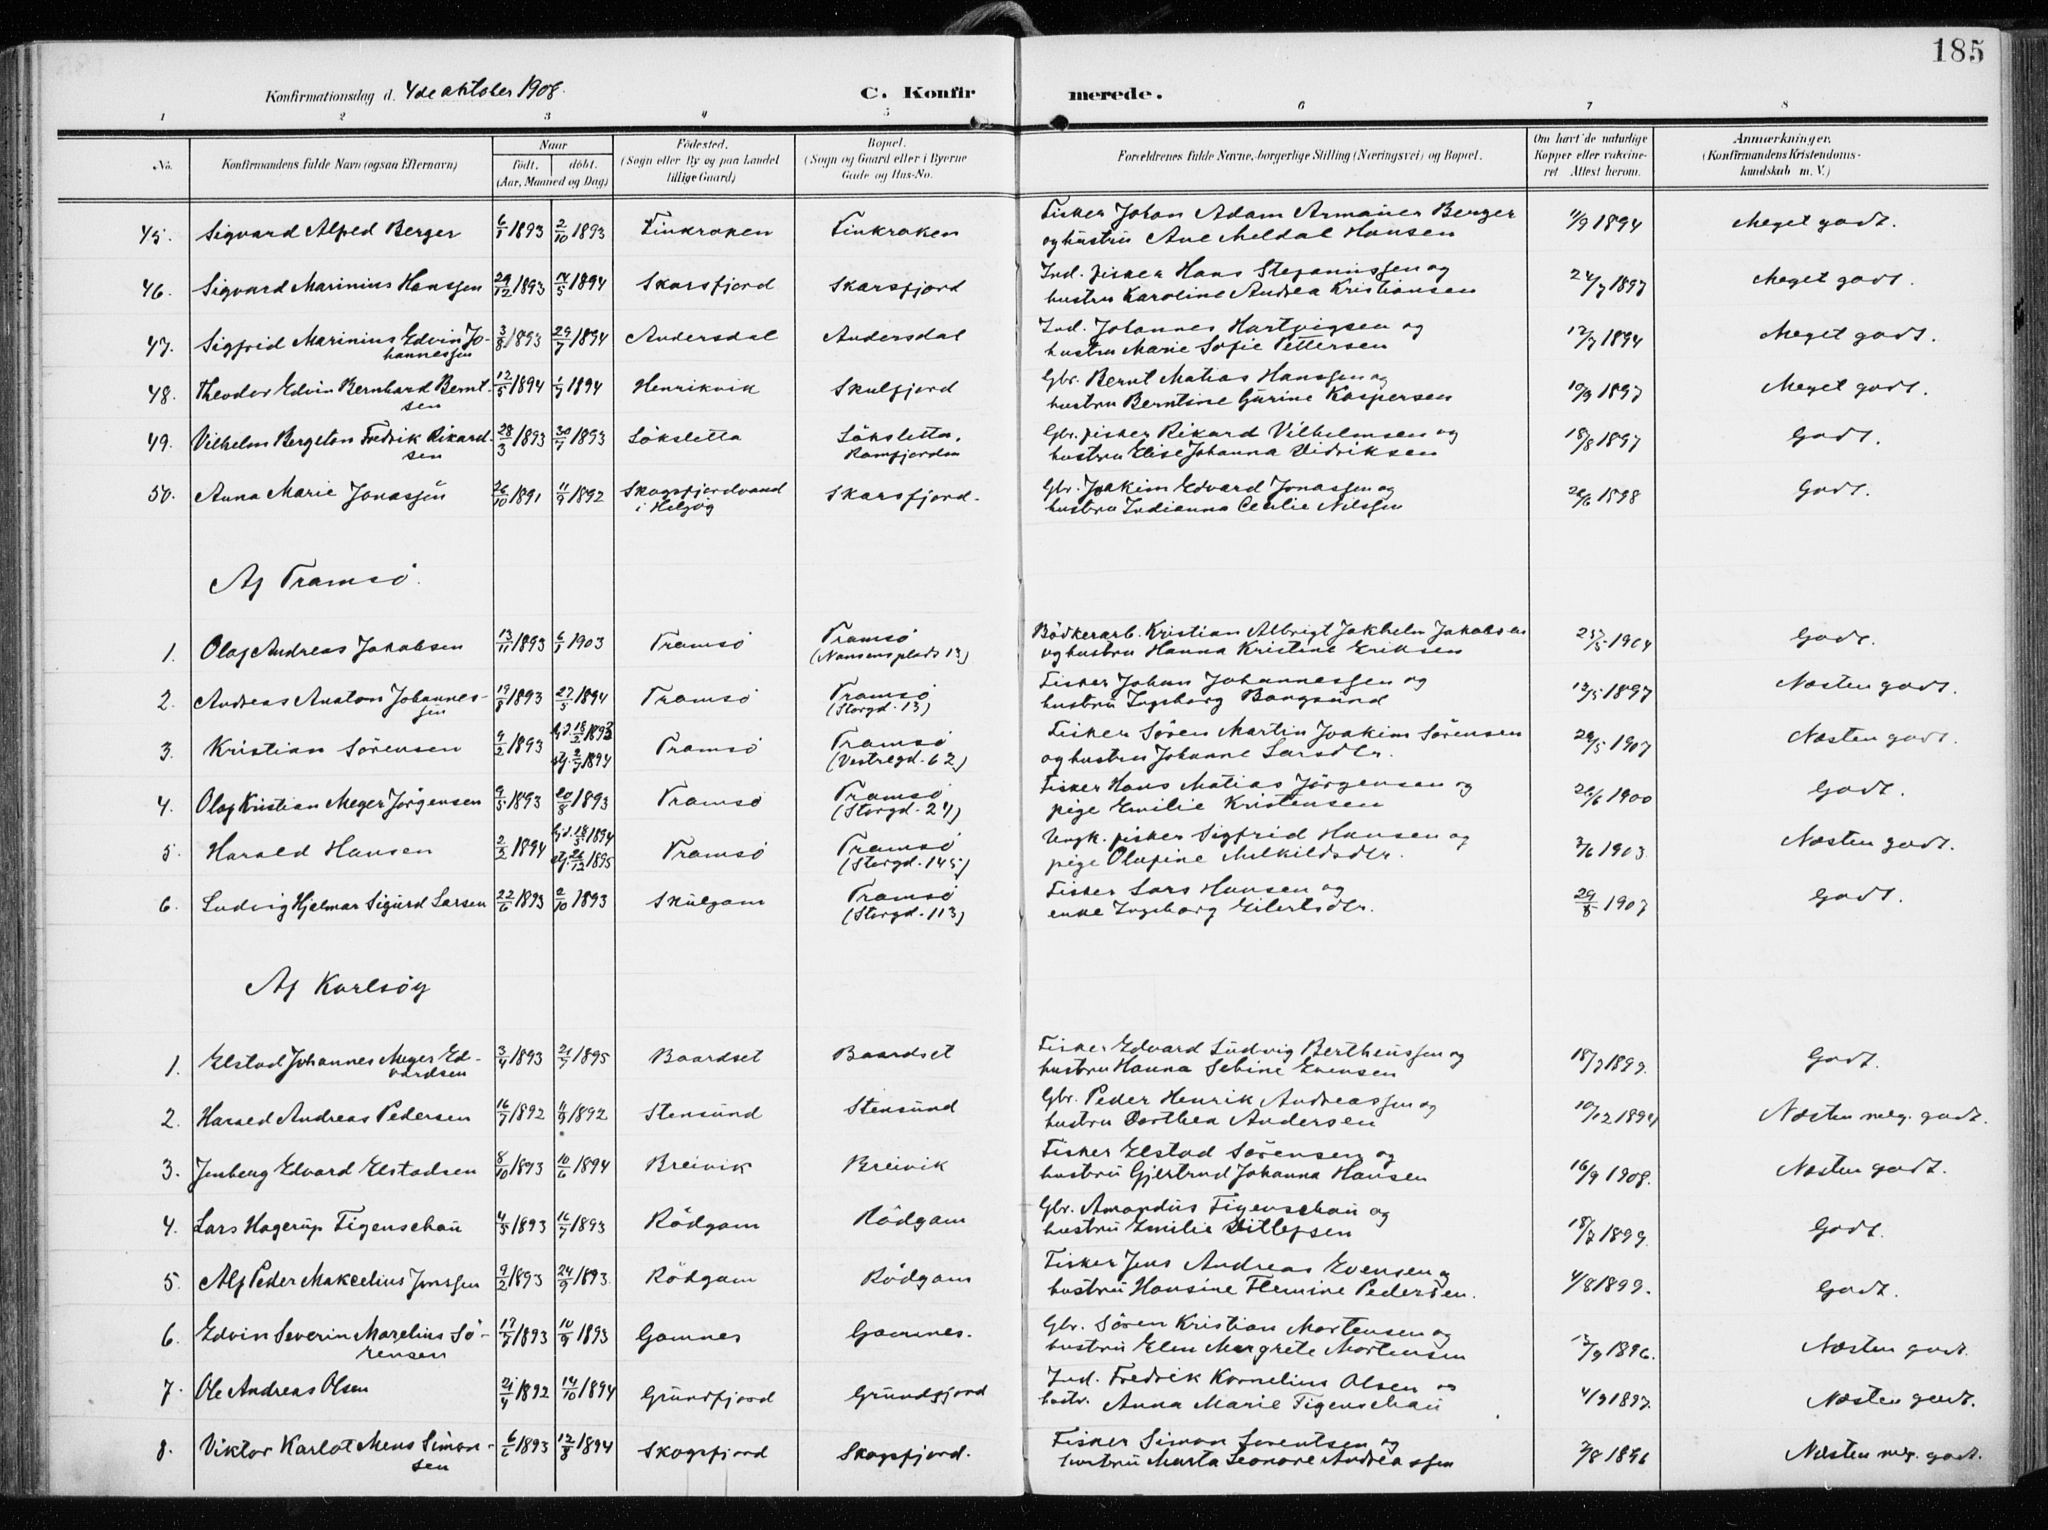 185
Konfirmationsdag d. 4de oktober 1908.
C. Konfirmerede.
1 2 3 4 5 6 7 8
No. Konfirmandens fulde Navn (ogsaa Efternavn) Naar født. døbt. (Aar, Maaned og Dag) Fødested. (Sogn eller By og paa Landet tillige Gaard) Bopæl. (Sogn og Gaard eller i Byerne Gade og Hus-No. Forældrenes fulde Navne, borgerlige Stilling (Næringsvei) og Bopæl. Om havt de naturlige Kopper eller vakcineret Attest herom. Anmærkninger. (Konfirmandens Kristendomskundskab m. V.)
45. Sigvard Alfred Berger 6/1 1893 2/10 1893 Finkroken Finkroken Fisker Johan Adam Armauer Berger
og hustru Ane Meldal Hansen 11/9 1894 Meget godt.
46. Sigvard Marinius Hanssen 29/12 1893 14/5 1894 Skarsfjord Skarsfjord Ind. fisker Hans Stefanussen og
hustru Karoline Andrea Kristiansen 24/7 1897 Meget godt.
47. Sigfrid Marinius Edvin Jo- 3/8 1893 29/7 1894 Andersdal Andersdal Ind. Johannes Hartvigsen og
hannessen hustru Marie Sofie Pettersen 12/7 1894 Meget godt.
48. Theodor Edvin Bernhard Bernt- 12/5 1894 1/7 1894 Henrikvik Skulfjord Gbr. Bernt Matias Hanssen og
sen hustru Berntine Gurine Kaspersen 10/9 1897 Meget godt.
49. Vilhelm Bergeton Fredrik Rikard- 28/3 1893 30/7 1893 Løksletta Løksletta, Gbr. fisker Rikard Vilhelmsen og
sen Ramfjorden hustru Elise Johanna Didriksen 18/8 1897 Godt.
50. Anna Marie Jonassen 26/10 1891 11/9 1892 Skogsfjordvand Skarsfjord. Gbr. Joakim Edvard Jonassen og
i Helgøy hustru Indianna Cecilie Nilssen 28/6 1898 Godt.
Af Tromsø.
1. Olaf Andreas Jakobsen 13/11 1893 6/1 1903 Tromsø Tromsø Bødkerarb. Kristian Albrigt Jakhelm Jakobsen
(Nansensplads 13) og hustru Hanna Kristine Eriksen 25/5 1904 Godt.
2. Andreas Anton Johannes- 19/8 1893 27/5 1894 Tromsø Tromsø Fisker Johan Johannessen og
sen (Storgd. 13) hustru Ingeborg Bangsund 12/5 1897 Næsten godt.
3. Kristian Sørensen 9/2 1893 hjd. 18/2 1893 Tromsø Tromsø Fisker Søren Martin Joakim Sørensen
stf. 2/7 1894 (Vestregd. 62) og hustru Johanne Larsdtr. 28/5 1907 Næsten godt.
4. Olaf Kristian Meyer Jørgensen 9/5 1893 20/8 1893 Tromsø Tromsø Fisker Hans Matias Jørgensen og
(Storgd. 24) pige Emilie Kristensen 26/6 1900 Godt.
5. Harald Hansen 2/2 1894 hjd. 18/3 1894 Tromsø Tromsø Ungk. fisker Sigfrid Hansen og
stf. 26/12 1895 (Storgd. 145) pige Olufine Mekildsdtr. 2/6 1903 Næsten godt.
6. Ludvig Hjalmar Sigurd Larsen 22/6 1893 2/10 1893 Skulgam Tromsø Fisker Lars Hansen og
(Storgd. 113) enke Ingeborg Eilertsdtr. 29/8 1907 Godt.
Af Karlsøy
1. Elstad Johannes Meyer Ed- 3/4 1893 21/7 1895 Baardset Baardset Fisker Edvard Ludvig Bertheussen og
vardsen hustru Hanna Sebine Evensen 18/7 1899. Godt.
2. Harald Andreas Pedersen 16/7 1892 11/9 1892 Stensund Stensund Gbr. Peder Henrik Andreassen og
hustru Dorthea Andersen 10/12 1894 Næsten meg. godt.
3. Jenberg Edvard Elstadsen 8/10 1893 10/6 1894 Breivik Breivik Fisker Elstad Sørensen og
hustru Gjertrud Johanna Hansen 16/9 1908. Næsten godt.
4. Lars Hagerup Figenschau 4/5 1893 16/7 1893 Rødgam Rødgam Gbr. Amandus Figenschau og
hustru Emilie Ditlefsen 18/7 1899. Godt.
5. Alf Peder Makcelius Jenssen 9/2 1893 24/9 1893. Rødgam Rødgam Fisker Jens Andreas Evensen og
hustru Hansine Flemine Pedersen. 4/8 1899. Godt.
6. Edvin Severin Marelius Sø- 17/7 1893 10/9 1893 Gamnes Gamnes. Gbr. Søren Kristian Mortensen og
rensen hustru Elen Margrete Mortensen 12/9 1896. Næsten godt.
7. Ole Andreas Olsen 21/4 1892 14/10 1894 Grundfjord Grundfjord Ind. Fredrik Kornelius Olsen og
hustr. Anna Marie Figenschau 4/9 1897. Næsten godt.
8. Viktor Karlot Mens Simon- 6/6 1893 12/8 1894 Skogsfjord Skogsfjord. Fisker Simon Lorentsen og
sen hustru Marta Leonore Andreassen 7/8 1896 Næsten meg. godt.